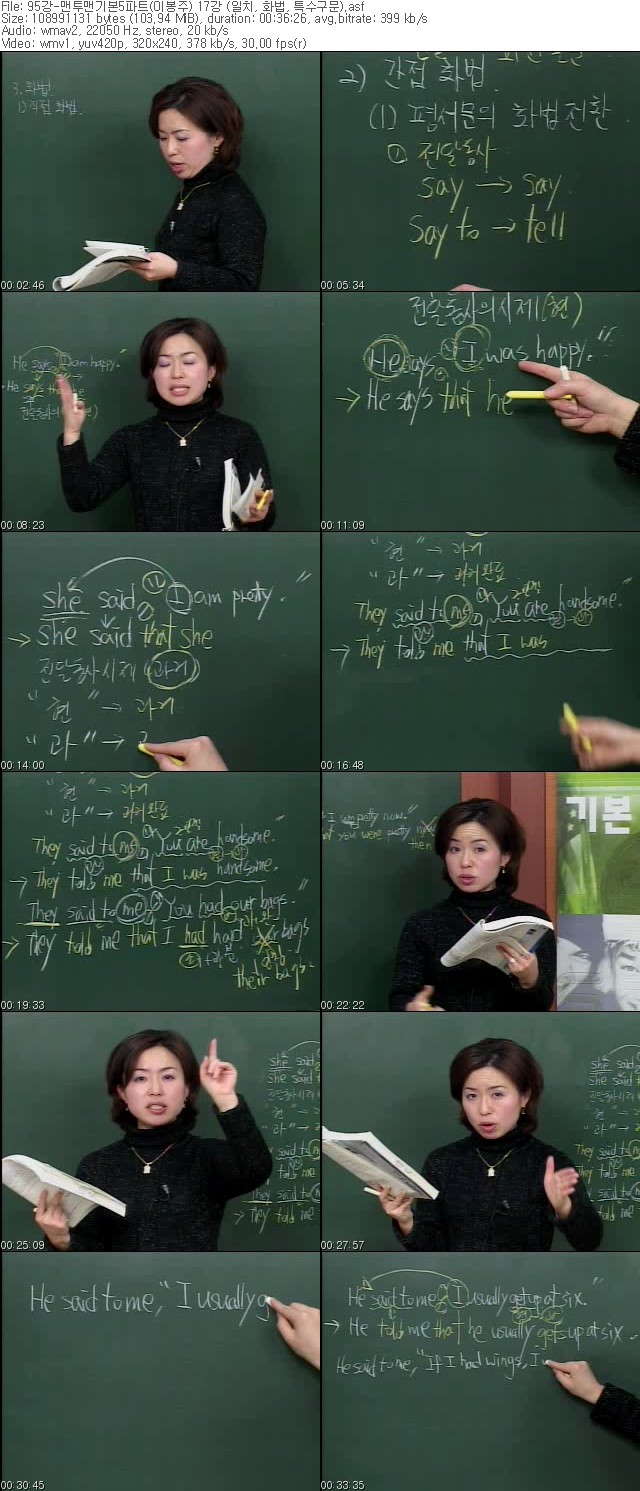 File: 95강-맨투맨기본5파트(이봉주) 17강 (일치, 화법, 특수구문).asf
Size: 108991131 bytes (103,94 MiB), duration: 00:36:26, avg,bitrate: 399 kb/s
Audio: wmav2, 22050 Hz, stereo, 20 kb/s
Video: wmv1, yuv420p, 320x240, 378 kb/s, 30,00 fps(r)
3. 화법
1) 직접 화법.
00:02:46
2) 간접 화법.
(1) 평서문의 화법전환
① 전달동사
say → say.
say to → tell
00:05:34
He says, I am happy."
He says that he
00:08:23
전달동사의 시제(현)
He says, "I was happy."
→ He says that he
00:11:09
she said, "I am pretty."
→ She said that she
전달동사시제 (과거)
"현" → 과거
"과" →
00:14:00
"현" → 과거
"과" → 과거완료
They said to me, "You are handsome."
→ They told me that I was
00:16:48
"현" → 과거
"과" → 과거완료
They said to me, "You are handsome."
→ They told me that I was handsome.
They said to me, "You had our bags."
→ They told me that I had had our bags
their bags.
00:19:33
I am pretty now."
you were pretty now
then
기본
00:22:22
she said
She said
They said to
They told me
00:25:09
she said
She said
said to
told me
said to
They told me
00:27:57
He said to me, "I usually g
00:30:45
He said to me, "I usually get up at six."
→ He told me that he usually gets up at six.
He said to me, "If I had wings, I
00:33:35